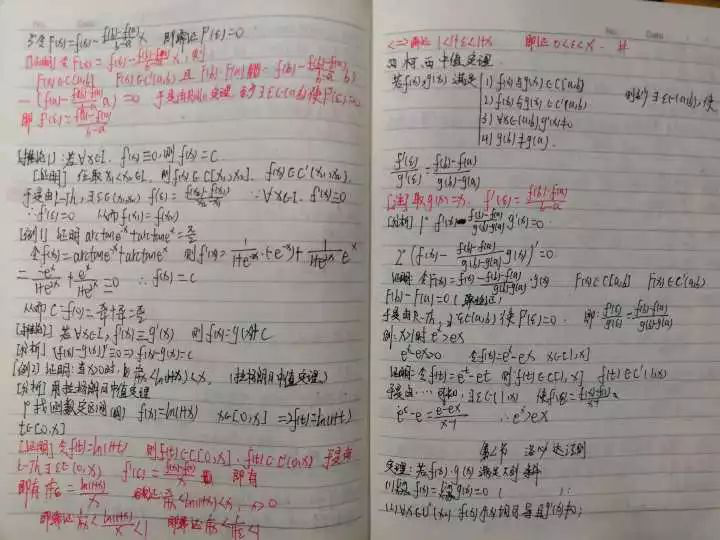 3°令F(x)=f(x)-\frac{f(b)-f(a)}{b-a}x 即证F'(ξ)=0
[证明] 令F(x)=f(x)-\frac{f(b)-f(a)}{b-a}x, 则
F(x)∈C[a,b] F(x)∈C'(a,b) 且 F(b)-F(a) = f(b)-\frac{f(b)-f(a)}{b-a}b
-(f(a)-\frac{f(b)-f(a)}{b-a}a)=0 于是由 定理 至少∃ξ∈(a,b)使F'(ξ)=0
即f'(ξ)=\frac{f(b)-f(a)}{b-a}
[推论1]: 若∀x∈I, f'(x)≡0, 则f(x)=C
[证明] 任取x₁<x₂∈I, 则f(x)∈C[x₁,x₂], f(x)∈C'(x₁,x₂),
于是由L-Th, ∃ξ∈(x₁,x₂), f'(ξ)=\frac{f(x₂)-f(x₁)}{x₂-x₁} ∵∀x∈I, f'(x)≡0
∴f'(ξ)=0 从而f(x₁)=f(x₂)
[例1] 证明 arctane^{-x}+arctane^x=\frac{π}{2}
令f(x)=arctane^{-x}+arctane^x 则f'(x)=\frac{1}{1+e^{-2x}}·(-e^{-x})+\frac{1}{1+e^{2x}}e^x
=\frac{-e^x}{1+e^{2x}}+\frac{e^x}{1+e^{2x}}≡0 ∴f(x)=C
从而C=f(0)=\frac{π}{4}+\frac{π}{4}=\frac{π}{2}
[推论2] 若∀x∈I, f'(x)≡g'(x) 则f(x)=g(x)+C
[分析] (f(x)-g(x))'=0⇒f(x)-g(x)=C
[例2] 证明: 当x>0时, \frac{x}{1+x}<ln(1+x)<x. (拉格朗日中值定理)
[分析] 用拉格朗日中值定理
1°找函数定区间 f(x)=ln(1+x) x∈[0,x] ⇒f(t)=ln(1+t)
t∈[0,x]
[证明] 令f(t)=ln(1+t) 则f(t)∈C[0,x], f(t)∈C'(0,x) 于是由
L-Th ∃ξ∈(0,x) f'(ξ)=\frac{f(x)-f(0)}{x} 即有
即有\frac{1}{1+ξ}=\frac{ln(1+x)}{x} \frac{x}{1+x}<ln(1+x)<x, x>0
即证\frac{1}{1+x}<\frac{ln(1+x)}{x}<1 即证\frac{1}{1+x}<\frac{1}{1+ξ}<1
⇔即证 1<1+ξ<1+x 即证 0<ξ<x.
四 柯西中值定理
若f(x),g(x)满足 1) f(x)与g(x)∈C[a,b]
2) f(x)与g(x)∈C'(a,b) 则至少∃ξ∈(a,b),使
3) ∀x∈(a,b) g'(x)≠0
4) g(b)≠g(a)
\frac{f'(ξ)}{g'(ξ)}=\frac{f(b)-f(a)}{g(b)-g(a)}
[注] 取g(x)=x, f'(ξ)=\frac{f(b)-f(a)}{b-a}
[分析] 1° f'(x)-\frac{f(b)-f(a)}{g(b)-g(a)}g'(x)=0
2°(f(x)-\frac{f(b)-f(a)}{g(b)-g(a)}g(x))'=0
证明: 令F(x)=f(x)-\frac{f(b)-f(a)}{g(b)-g(a)}g(x) F(x)∈C[a,b] F(x)∈C'(a,b)
F(b)-F(a)=0
于是由R-Th, ∃ξ∈(a,b)使F'(ξ)=0. 即: \frac{f'(ξ)}{g'(ξ)}=\frac{f(b)-f(a)}{g(b)-g(a)}
例: x>1时 e^x>ex
e^x-ex>0 令f(x)=e^x-ex x∈[1,x]
证明: 令f(t)=e^t-et 则f(t)∈C[1,x] f(t)∈C'(1,x)
于是由 ∃ξ∈(1,x) 使f'(ξ)=\frac{f(x)-f(1)}{x-1}
e^ξ-e=\frac{e^x-ex}{x-1} ∴e^x>ex
第2节 洛必达法则
定理: 若f(x),g(x)满足下列条件
(1) lim f(x)=lim g(x)=0
(2) ∀x∈U°(x₀) f(x)g(x)均可导且g'(x)≠0;